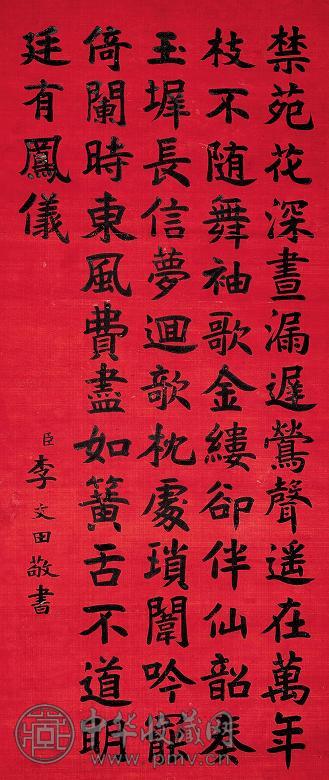 禁苑花深晝漏遲鶯聲遥在萬年
枝不随舞袖歌金縷卻伴仙韶奏
玉墀長信夢迴欹枕處瑣闈吟罷
倚闌時東風費盡如簧舌不道明
廷有鳳儀
臣李文田敬書
中华收藏网
www.pmv.cn